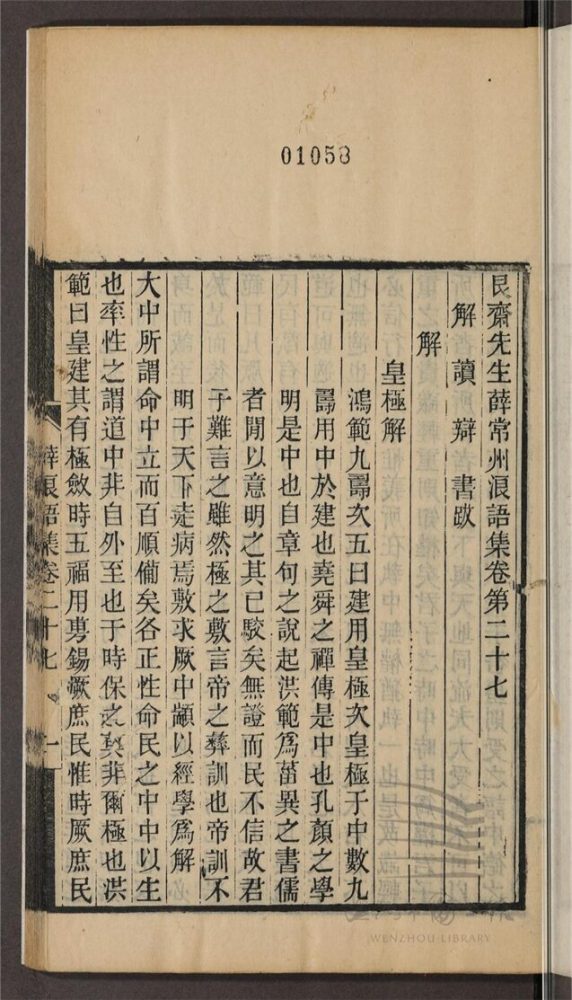 01058
艮齋先生薛常州浪語集卷第二十七
解 讀 辯 書跋
解
皇極解
鴻範九疇次五曰建用皇極次皇極于中數九
疇用中於建也堯舜之禪傳是中也孔顏之學
明是中也自章句之說起洪範爲葘異之書儒
者閒以意明之其已駮矣無證而民不信故君
子難言之雖然極之敷言帝之彝訓也帝訓不
明于天下走病焉敷求厥中顓以經學爲解
大中所謂命中立而百順備矣各正性命民之中中以生
也率性之謂道中非自外至也于時保之莫非爾極也洪
範曰皇建其有極斂時五福用旉錫厥庶民惟時厥庶民
薛浪語集卷二十七 一
WENZHOU LIBRARY